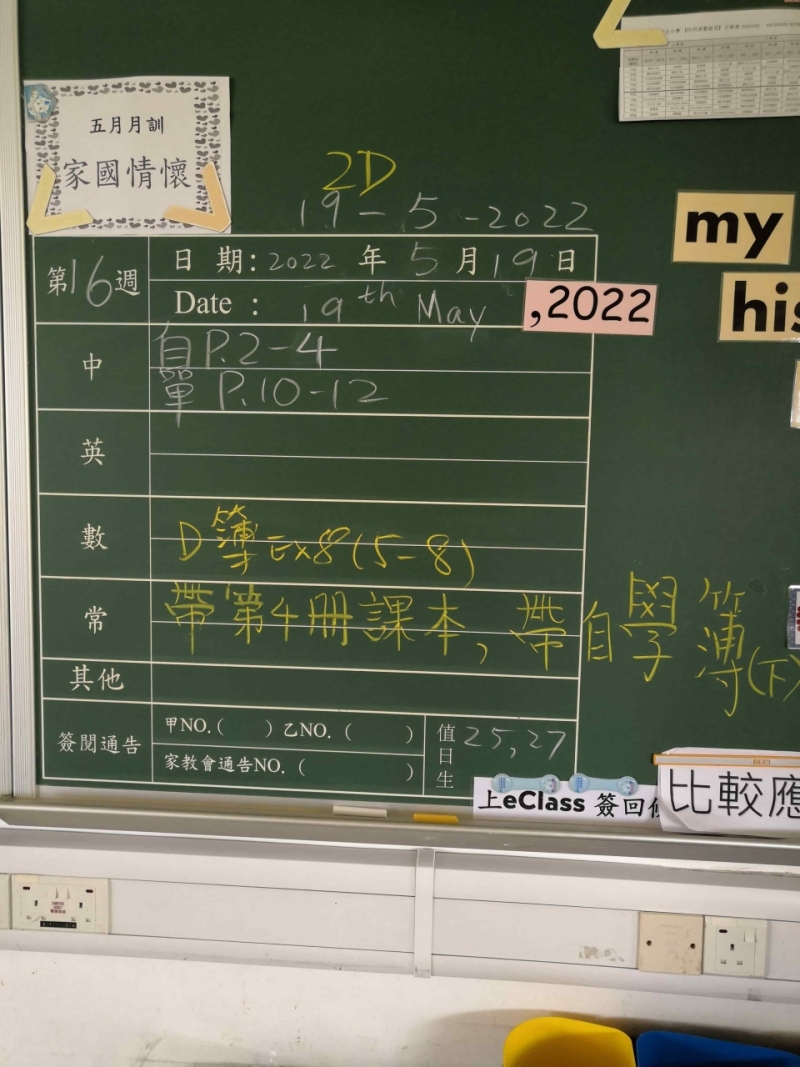 五月月訓
家國情懷
2D
19-5-2022
第16週
日期:2022年5月19日
Date : 19th May ,2022
my
his
中
自P.2-4
單P.10-12
英
數
D簿Ex8(5-8)
常
帶第4冊課本,帶自學簿(下)
其他
簽閱通告
甲NO.( )乙NO.( )
家教會通告NO.( )
值日生
25,27
上eClass 簽回
比較應